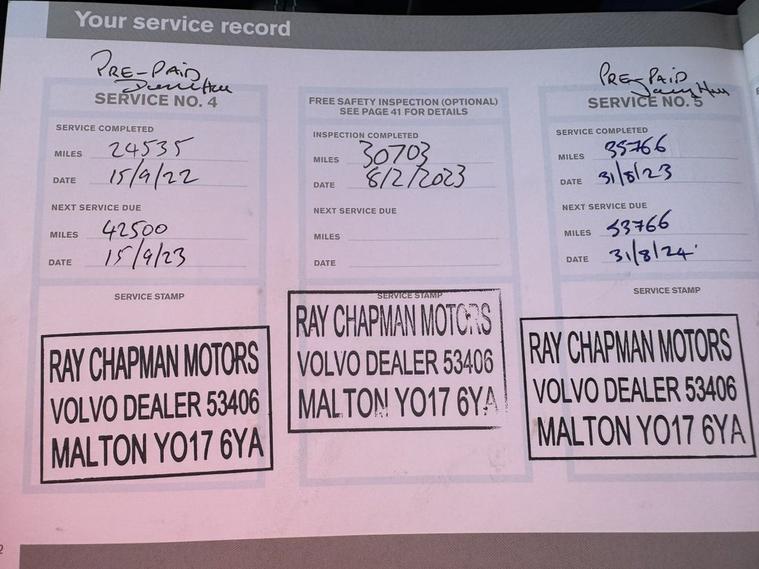 Your service record
PRE-PAID
SERVICE NO. 4
SERVICE COMPLETED
MILES 24535
DATE 15/9/22
NEXT SERVICE DUE
MILES 42500
DATE 15/9/23
SERVICE STAMP
RAY CHAPMAN MOTORS
VOLVO DEALER 53406
MALTON YO17 6YA
FREE SAFETY INSPECTION (OPTIONAL)
SEE PAGE 41 FOR DETAILS
INSPECTION COMPLETED
MILES 30703
DATE 8/2/2023
NEXT SERVICE DUE
MILES
DATE
SERVICE STAMP
RAY CHAPMAN MOTORS
VOLVO DEALER 53406
MALTON YO17 6YA
PRE-PAID
SERVICE NO. 5
SERVICE COMPLETED
MILES 35766
DATE 31/8/23
NEXT SERVICE DUE
MILES 53766
DATE 31/8/24
SERVICE STAMP
RAY CHAPMAN MOTORS
VOLVO DEALER 53406
MALTON YO17 6YA